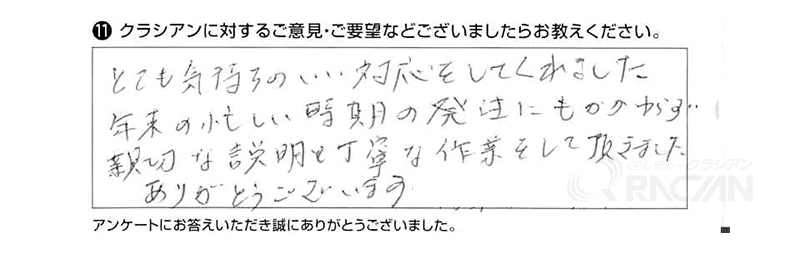 ⓫ クラシアンに対するご意見・ご要望などございましたらお教えください。
とても気持ちのいい対応をしてくれました
年末の忙しい時期の発注にもかかわらず
親切な説明と丁寧な作業をして頂きました
ありがとうございます
くらし安心クラシアン
QRACIAN
アンケートにお答えいただき誠にありがとうございました。